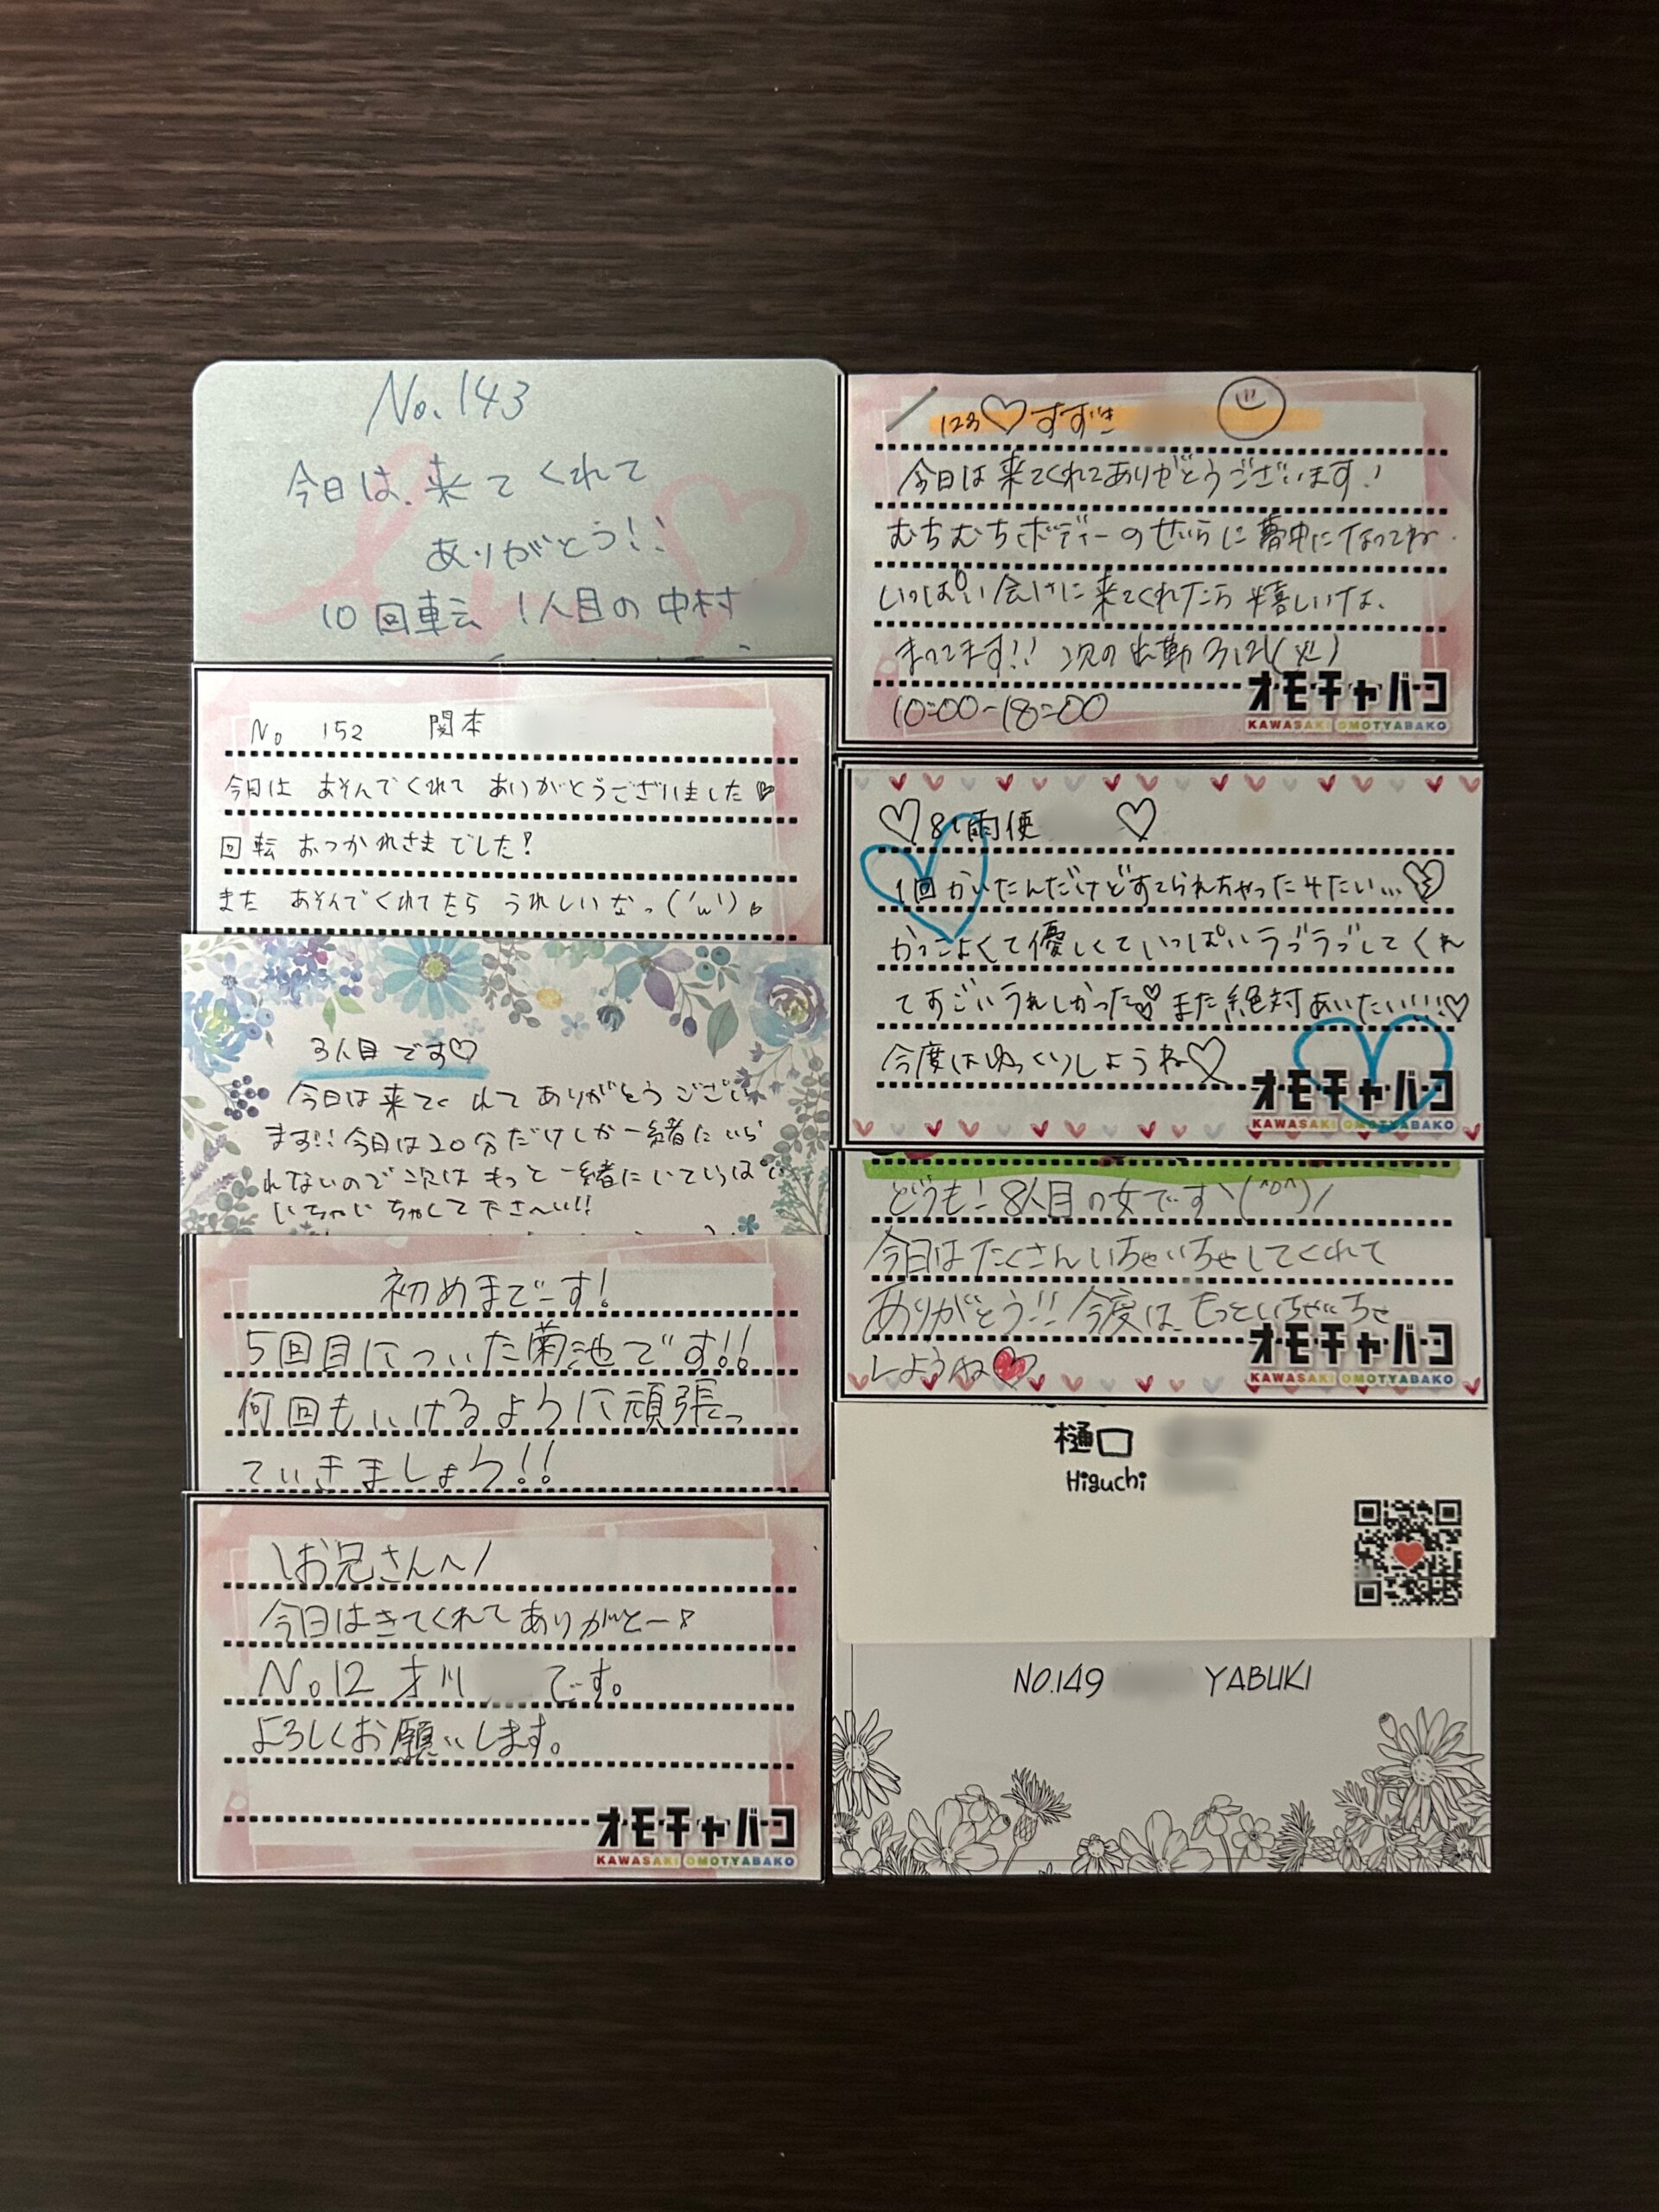 No.143
今日は、来てくれて
ありがとう!!
10回転 1人目の中村
No 152 関本
今日は あそんでくれて ありがとうございました♡
回転 おつかれさまでした!
また あそんでくれてたら うれしいなっ('ω')♡
3人目です♡
今日は来てくれてありがとうござい
ます!!今日は20分だけしか一緒にいら
れないので次はもっと一緒にいていっぱい
いちゃいちゃして下さーい!!
初めまでーす!
5回目についた菊池です!!
何回もいけるように頑張っ
ていきましょう!!
\お兄さん〜/
今日はきてくれてありがとー♪
No.12 才川 です。
よろしくお願いします。
オモチャバコ
KAWASAKI OMOTYABAKO
123♡すずき
今日は来てくれてありがとうございます!
むちむちボディーのせいらに夢中になってね
いっぱい会いに来てくれたら嬉しいな、
まってます!! 次の出勤 3/21(火)
10:00-18:00
オモチャバコ
KAWASAKI OMOTYABAKO
♡81雨便 ♡
1回かいたんだけどすてられちゃったみたい...💔
かっこよくて優しくていっぱいラブラブしてくれ
てすごいうれしかった♡また絶対あいたい!!!♡
今度はゆっくりしようね♡
オモチャバコ
KAWASAKI OMOTYABAKO
どうも!8人目の女です\(^o^)/
今日はたくさんいちゃいちゃしてくれて
ありがとう!!今度は、もっといちゃいちゃ
しようね♥
オモチャバコ
KAWASAKI OMOTYABAKO
樋口
Higuchi
NO.149 YABUKI